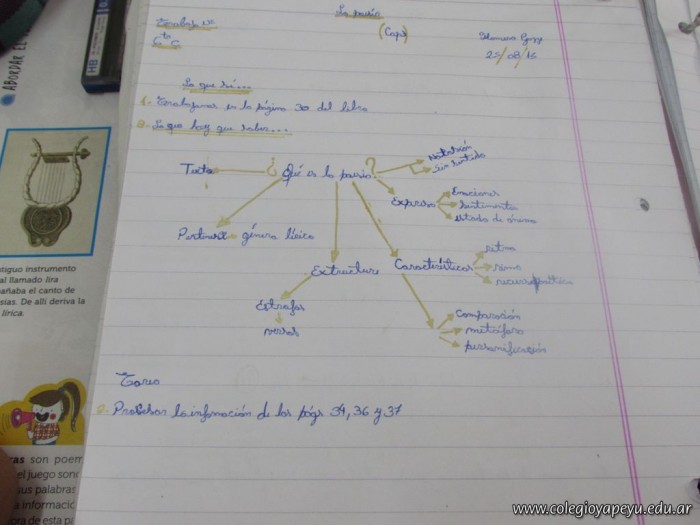 La poesía
Trabajo Nº
(Cap)
6to G
25/08/16
Lo que sé...
1. Trabajamos en la página 30 del libro
2. Lo que hay que saber...
¿Qué es la poesía?
Texto
Sin sentido
Expresa
Emociones
Sentimientos
estado de ánimo
Pertenece género lírico
Estructura
Características
ritmo
rima
recurso poético
Estrofas
versos
Comparación
metáfora
personificación
Tarea
la información de las págs 34, 36 y 37
ABORDAR EL
HB
tiguo instrumento
al llamado lira
añaba el canto de
sías. De allí deriva la
lírica.
ras son poem
el juego sono
sus palabras
a informació
ora de esta pá
www.colegioyapeyu.edu.ar